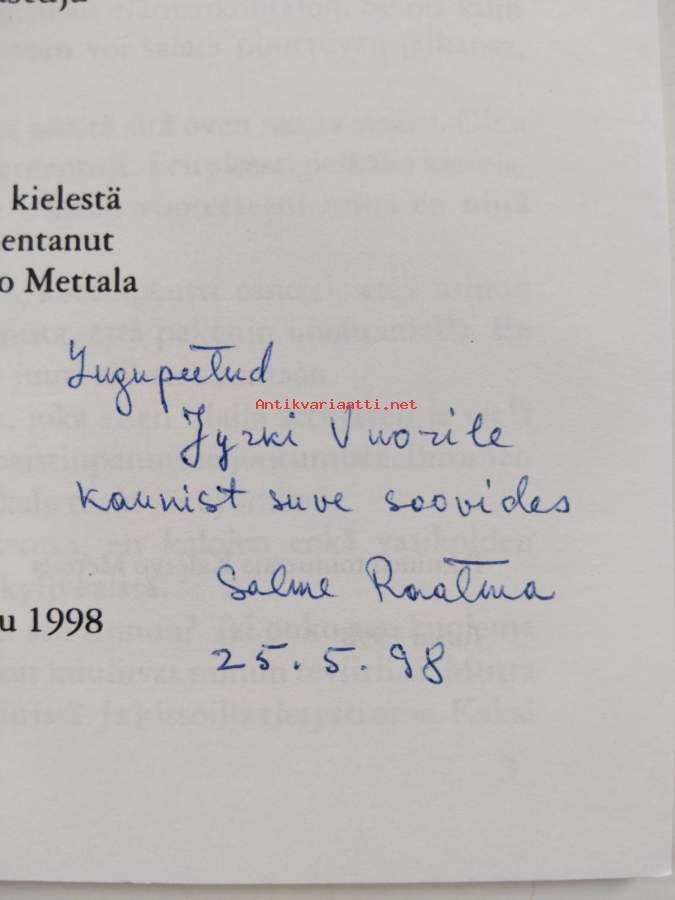 kielestä
entanut
o Mettala
Lugupeetud
Antikvariaatti.net
Jyrki Vuorile
kaunist suve soovides
Salme Raatma
u 1998
25.5.98